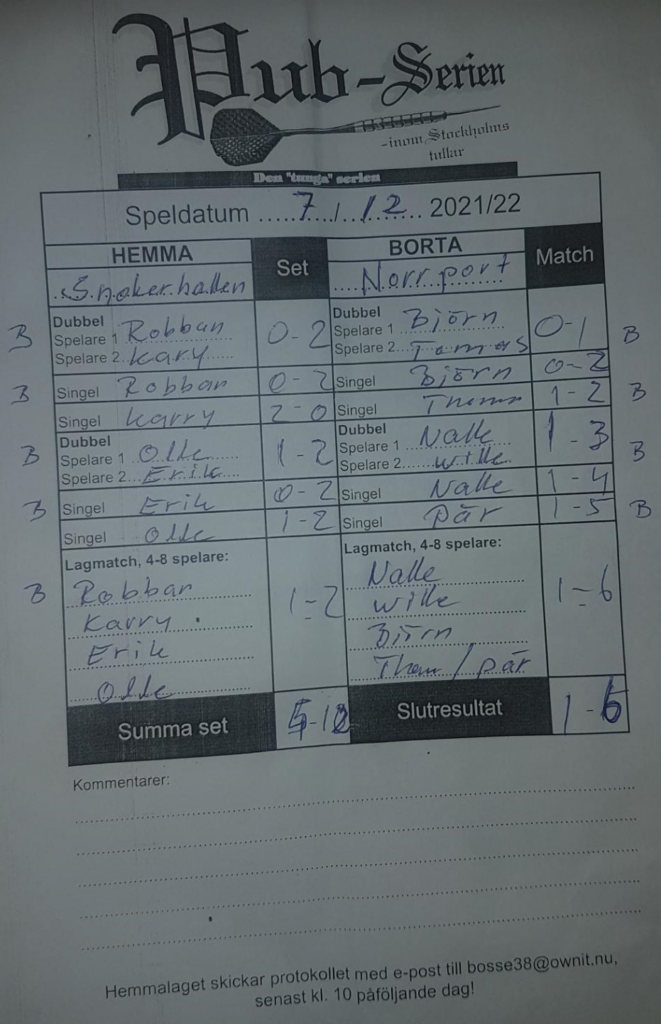 Pub-Serien
-inom Stockholms
tullar
Den "tunga" serien
Speldatum ......7.../...12... 2021/22
HEMMA Set BORTA Match
Snokerhallen Norrport
Dubbel Dubbel
B Spelare 1 Robban 0-2 Spelare 1 Björn 0-1 B
Spelare 2 Kary Spelare 2 Tomas
B Singel Robban 0-2 Singel Björn 0-2
Singel Karry 2-0 Singel Thom 1-2 B
Dubbel Dubbel
B Spelare 1 Olle 1-2 Spelare 1 Nalle 1-3
Spelare 2 Erik Spelare 2 Wille B
B Singel Erik 0-2 Singel Nalle 1-4
Singel Olle 1-2 Singel Pär 1-5 B
Lagmatch, 4-8 spelare: Lagmatch, 4-8 spelare:
B Robban 1-2 Nalle 1-6
Karry Wille
Erik Björn
Olle Thom / Pär
Summa set 5-12 Slutresultat 1-6
Kommentarer:
Hemmalaget skickar protokollet med e-post till bosse38@ownit.nu,
senast kl. 10 påföljande dag!